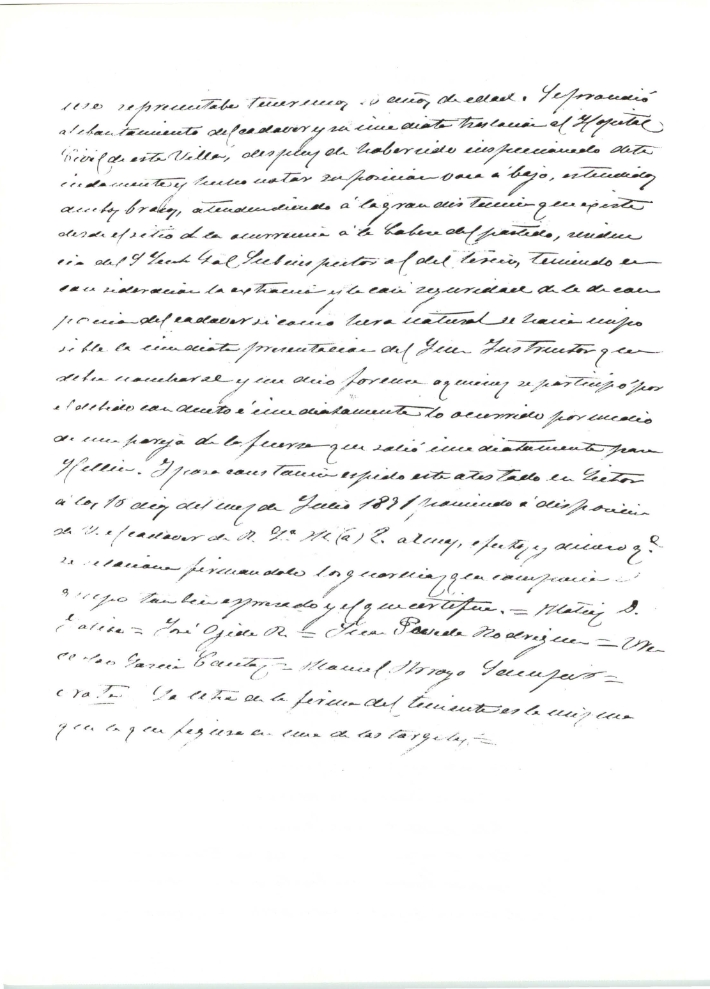 representaba tener unos años de edad. Se procedió
al lebantamiento del cadaver y su inmediata traslacion al Hospital
Civil de esta Villa, despues de haber sido inspecionado dete
nidamente y hecho notar su posicion boca á bajo, estendidos
ambos brazos, atendiendo á la gran distancia que existe
desde el sitio de la ocurrencia á la Cabeza del partido, residen
cia del S Subinspector del tercio, teniendo en
consideracion la estacion y la casi seguridad de la decom
posicion del cadaver si como hera natural se hacia impo
sible la imediata presentacion del Juez Instructor que
debe nombrarse y medico forense á quienes se participó por
el debido conducto é imediatamente lo ocurrido por medio
de una pareja de la fuerza que salió imediatamente para
Hellin. Y para constancia espido este atestado en Lietor
á los 15 dias del mes de Julio 1891 poniendo á disposicion
de V. el cadaver de armas, efectos y dinero q.e
se relaciona firmandolo los guardias que componian
grupo tambien espresado y el que certifica. = Matias D.
= José Ojeda R. = Juan Poveda Rodriguez = Wen
ceslao Garcia = Manuel Arroyo =
La letra de la firma del teniente es la misma
que la que figura en una de las targetas =